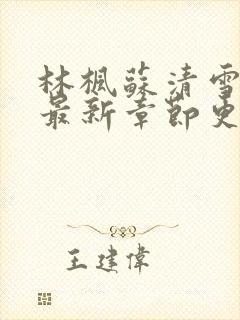 林楓蘇清雪
最新章節史
王建偉